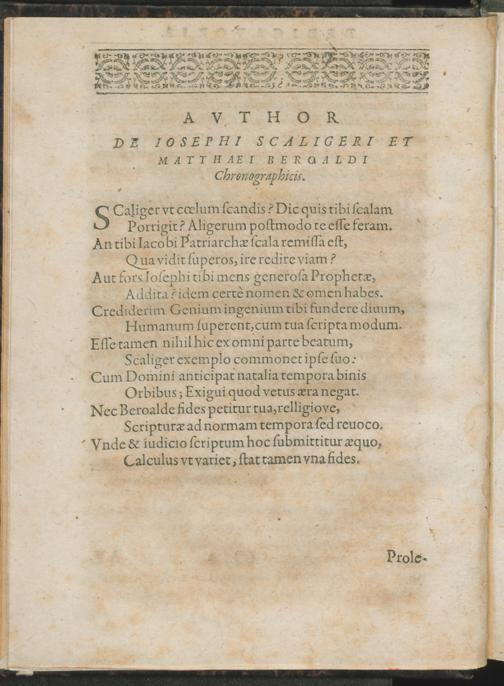 AVTHOR
DE IOSEPHI SCALIGERI ET
MATTHAEI BEROALDI
Chronographicis.
SCaliger vt cœlum scandis? Dic quis tibi scalam
Porrigit? Aligerum postmodo te esse feram.
An tibi Iacobi Patriarchæ scala remissa est,
Qua vidit superos, ire redire viam?
Aut fors Iosephi tibi mens generosa Prophetæ,
Addita? idem certè nomen & omen habes.
Crediderim Genium ingenium tibi fundere diuum,
Humanum superent, cum tua scripta modum.
Esse tamen nihil hic ex omni parte beatum,
Scaliger exemplo commonet ipse suo:
Cum Domini anticipat natalia tempora binis
Orbibus; Exigui quod vetus æra negat.
Nec Beroalde fides petitur tua, relligiove,
Scripturæ ad normam tempora sed reuoco.
Vnde & iudicio scriptum hoc submittitur æquo,
Calculus vt variet, stat tamen vna fides.
Prole-